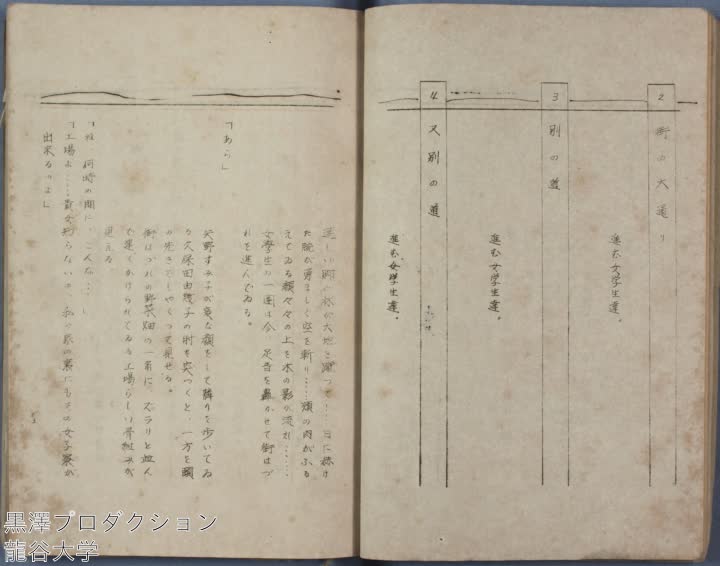 2
街の大通り
進む女学生達。
3
別の道
進む女学生達。
4
又別の道
進む女学生達。
美しい脚の林が大地を蹴って!一日に焼け
た腕が勇ましく空を斬り……頬の肉がふる
えてゐる顔々々の上を木の影が流れ……
女學生の一團は今、足音を轟かせて街はづ
れを進んでゐる。
「あら」
矢野すみ子が変な顔をして隣りを歩いてゐ
る久保田由穂子の肘を突つくと、一方を顎
の先きでしやくつて見せる。
街はづれの野菜畑の一角に、ズラリと並ん
で建てかけられてゐる工場らしい骨組みが
見える
「ね、何時の間に、こんな…」
「工場よ……貴女知らないの、私の家の裏にもその女子寮が
出来るのよ」
黒澤プロダクション
龍谷大学